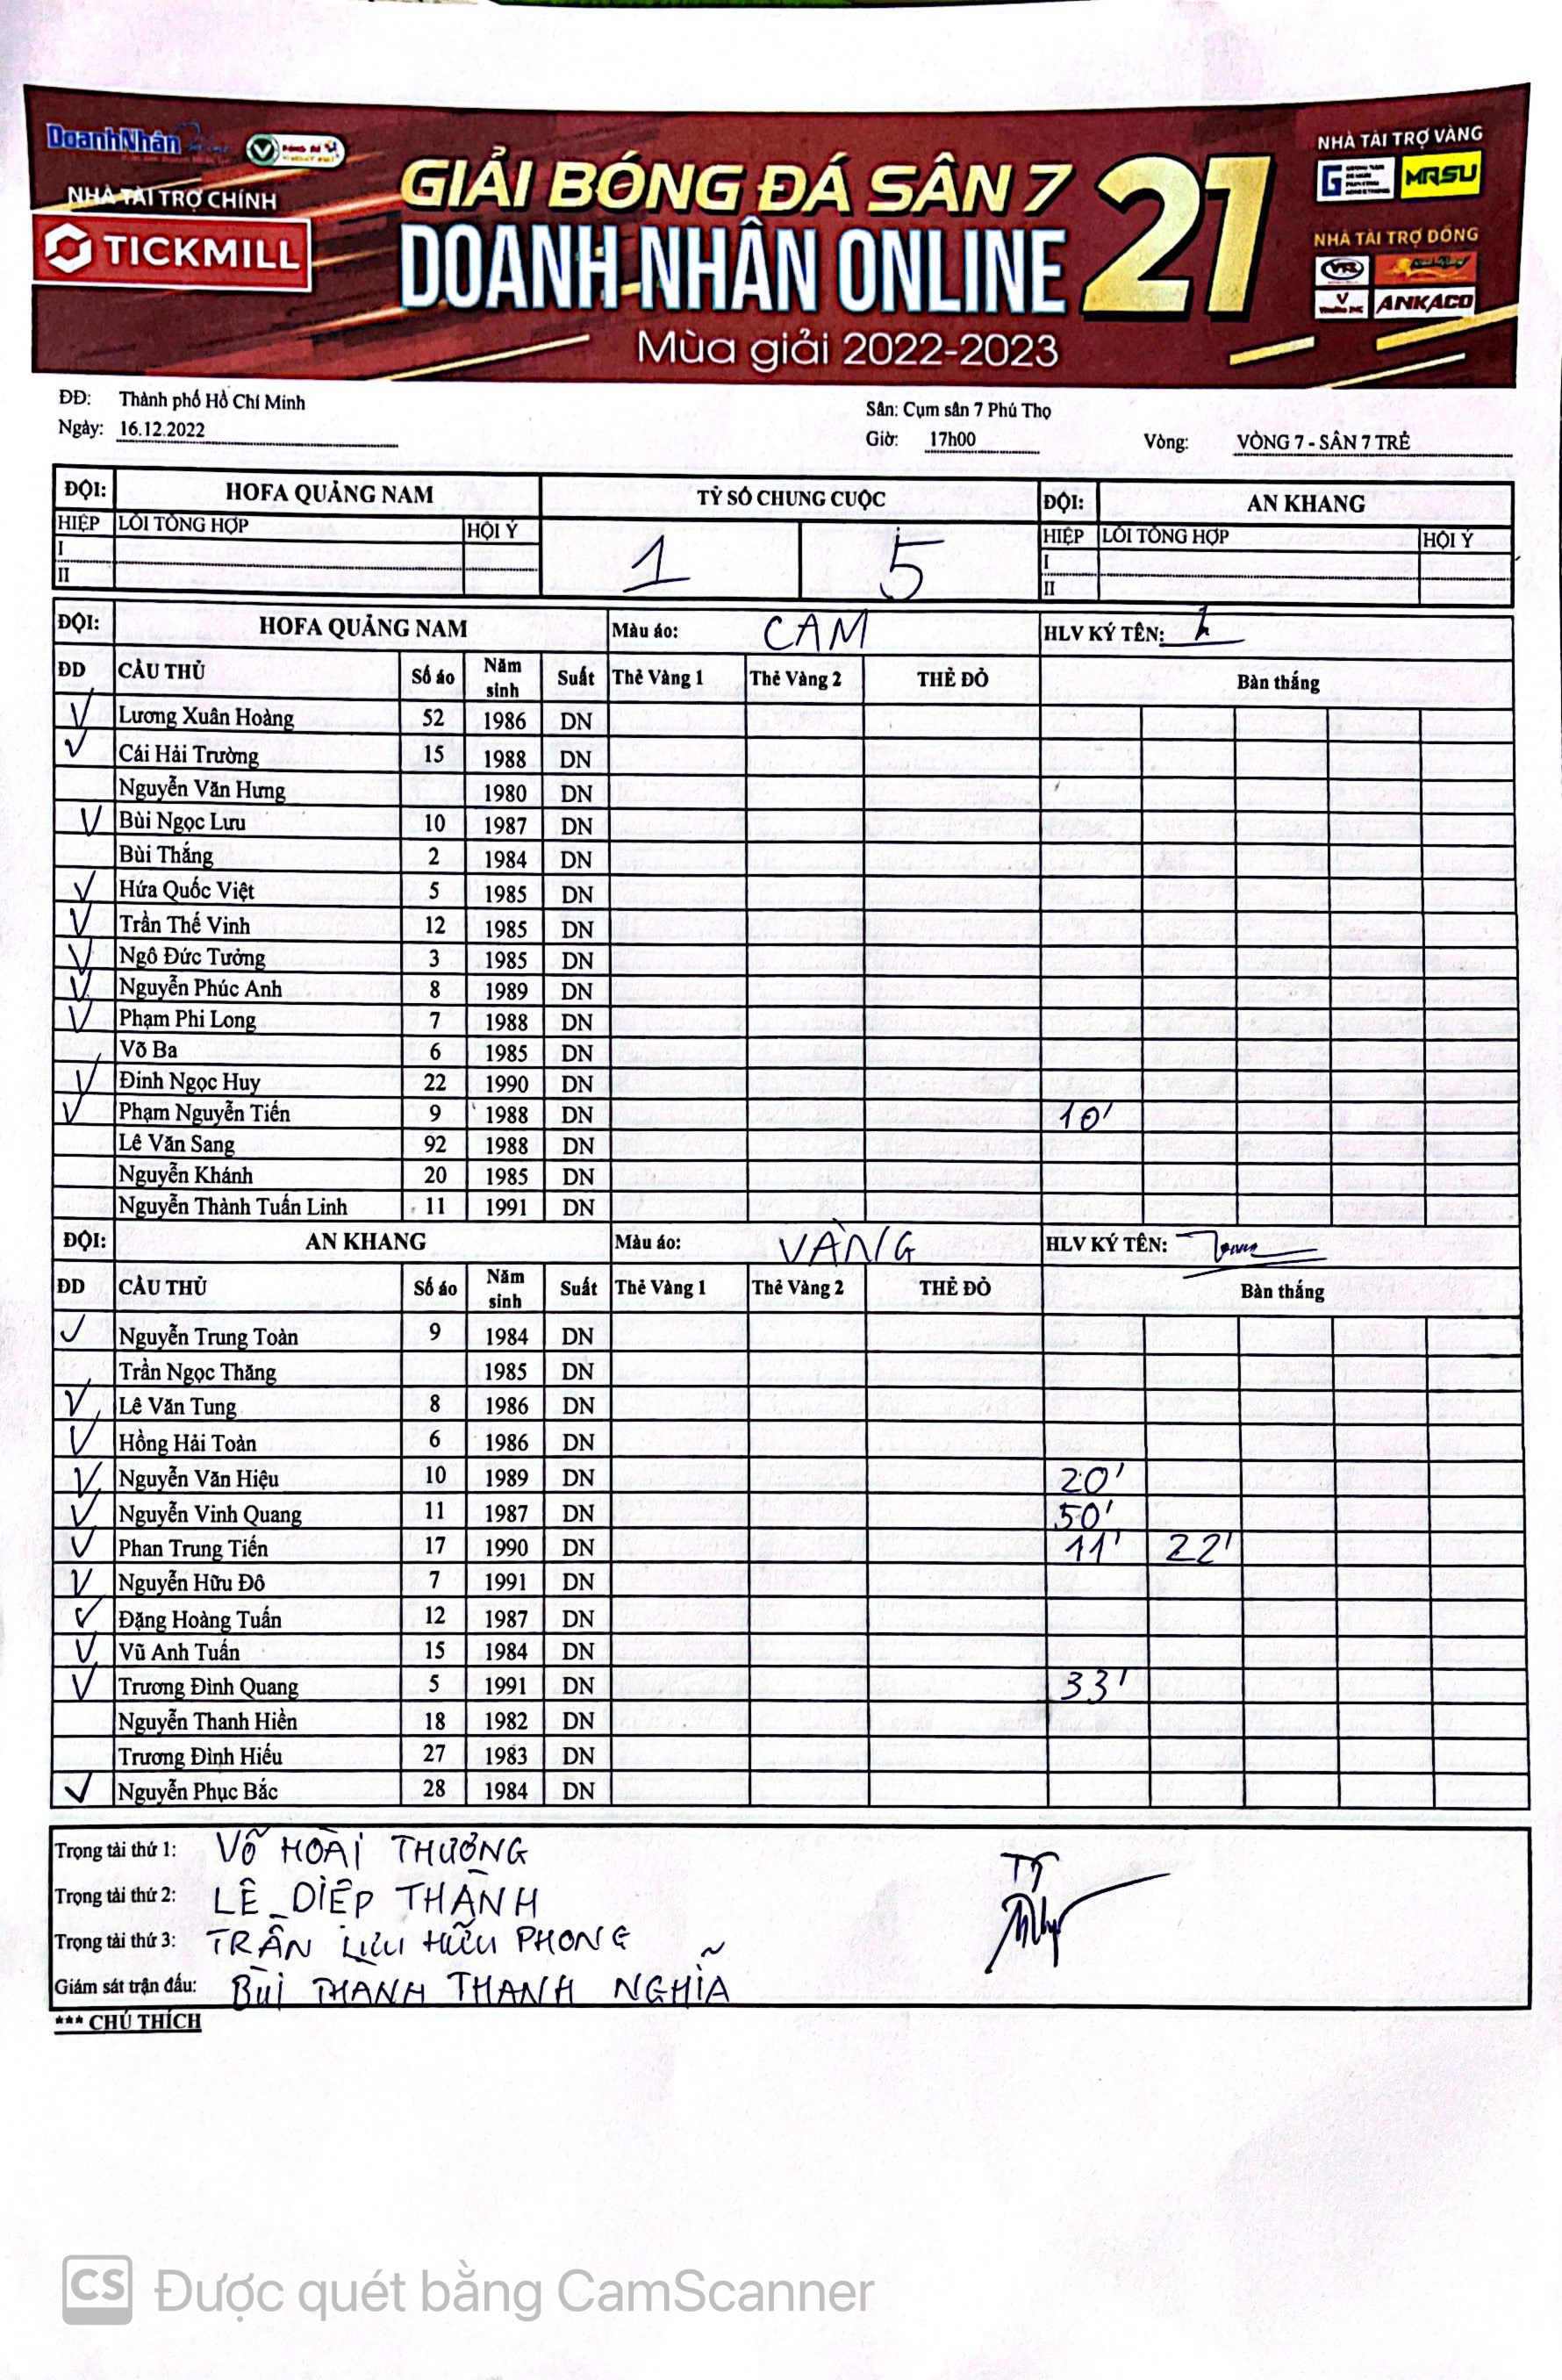 DoanhNhân
NHÀ TÀI TRỢ CHÍNH
TICKMILL
GIẢI BÓNG ĐÁ SÂN 7
DOANH NHÂN ONLINE 21
Mùa giải 2022-2023
NHÀ TÀI TRỢ VÀNG
MRSU
NHÀ TÀI TRỢ ĐỒNG
ANKACO
ĐĐ: Thành phố Hồ Chí Minh
Sân: Cụm sân 7 Phú Thọ
Ngày: 16.12.2022
Giờ: 17h00 Vòng: VÒNG 7 - SÂN 7 TRẺ
ĐỘI: HOFA QUẢNG NAM TỶ SỐ CHUNG CUỘC ĐỘI: AN KHANG
HIỆP LỖI TỔNG HỢP HỘI Ý 1 5 HIỆP LỖI TỔNG HỢP HỘI Ý
I I
II II
ĐỘI: HOFA QUẢNG NAM Màu áo: CAM HLV KÝ TÊN:
ĐD CẦU THỦ Số áo Năm sinh Suất Thẻ Vàng 1 Thẻ Vàng 2 THẺ ĐỎ Bàn thắng
V Lương Xuân Hoàng 52 1986 DN
V Cái Hải Trường 15 1988 DN
Nguyễn Văn Hưng 1980 DN
V Bùi Ngọc Lưu 10 1987 DN
Bùi Thắng 2 1984 DN
V Hứa Quốc Việt 5 1985 DN
V Trần Thế Vinh 12 1985 DN
V Ngô Đức Tưởng 3 1985 DN
V Nguyễn Phúc Anh 8 1989 DN
V Phạm Phi Long 7 1988 DN
Võ Ba 6 1985 DN
V Đinh Ngọc Huy 22 1990 DN
V Phạm Nguyễn Tiến 9 1988 DN 10'
Lê Văn Sang 92 1988 DN
Nguyễn Khánh 20 1985 DN
Nguyễn Thành Tuấn Linh 11 1991 DN
ĐỘI: AN KHANG Màu áo: VÀNG HLV KÝ TÊN:
ĐD CẦU THỦ Số áo Năm sinh Suất Thẻ Vàng 1 Thẻ Vàng 2 THẺ ĐỎ Bàn thắng
V Nguyễn Trung Toàn 9 1984 DN
Trần Ngọc Thăng 1985 DN
V Lê Văn Tung 8 1986 DN
V Hồng Hải Toàn 6 1986 DN
V Nguyễn Văn Hiệu 10 1989 DN 20'
V Nguyễn Vinh Quang 11 1987 DN 50'
V Phan Trung Tiến 17 1990 DN 11' 22'
V Nguyễn Hữu Đô 7 1991 DN
V Đặng Hoàng Tuấn 12 1987 DN
V Vũ Anh Tuấn 15 1984 DN
V Trương Đình Quang 5 1991 DN 33'
Nguyễn Thanh Hiền 18 1982 DN
Trương Đình Hiếu 27 1983 DN
V Nguyễn Phục Bắc 28 1984 DN
Trọng tài thứ 1: VÕ HOÀI THƯƠNG
Trọng tài thứ 2: LÊ DIỆP THÀNH
Trọng tài thứ 3: TRẦN LƯU HỮU PHONG
Giám sát trận đấu: BÙI THÀNH THANH NGHĨA
*** CHÚ THÍCH
CS Được quét bằng CamScanner